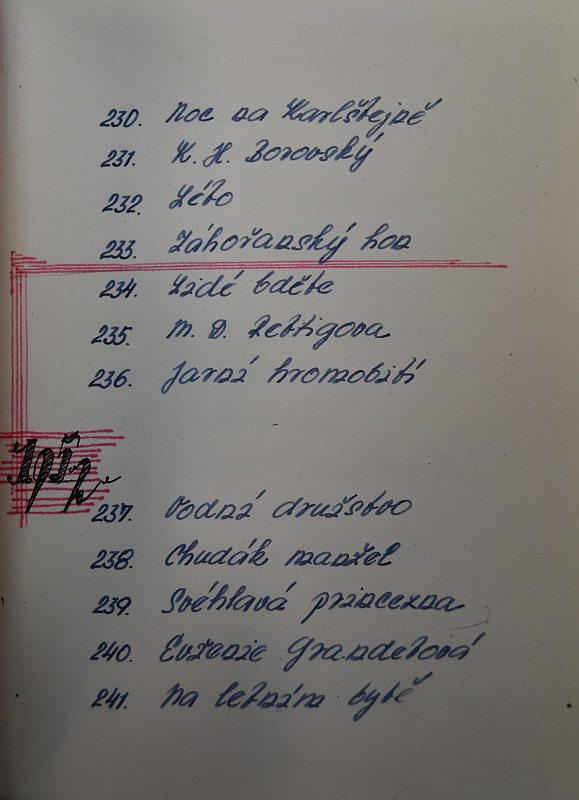 230. Noc na Karlštejně
231. K. H. Borovský
232. Léto
233. Záhořanský hon
234. Lidé bděte
235. M. D. Rettigova
236. Jarní hromobití
237. Vodní družstvo
238. Chudák manžel
239. Svéhlavá princezna
240. Evženie Grandetová
241. Na letním bytě